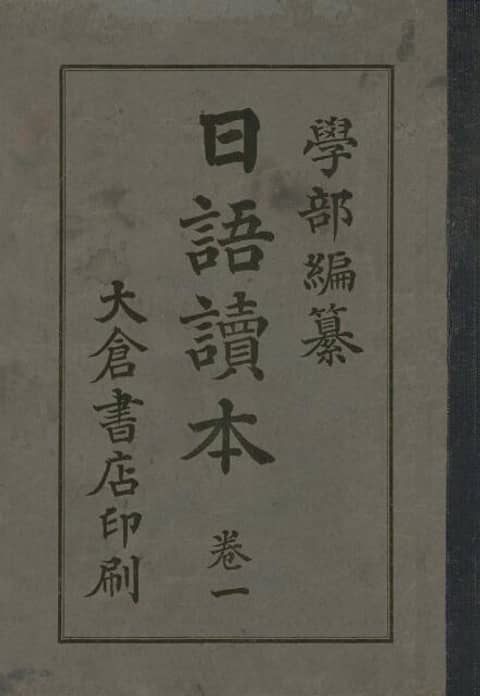 學部編纂
日語讀本
卷一
大倉書店印刷